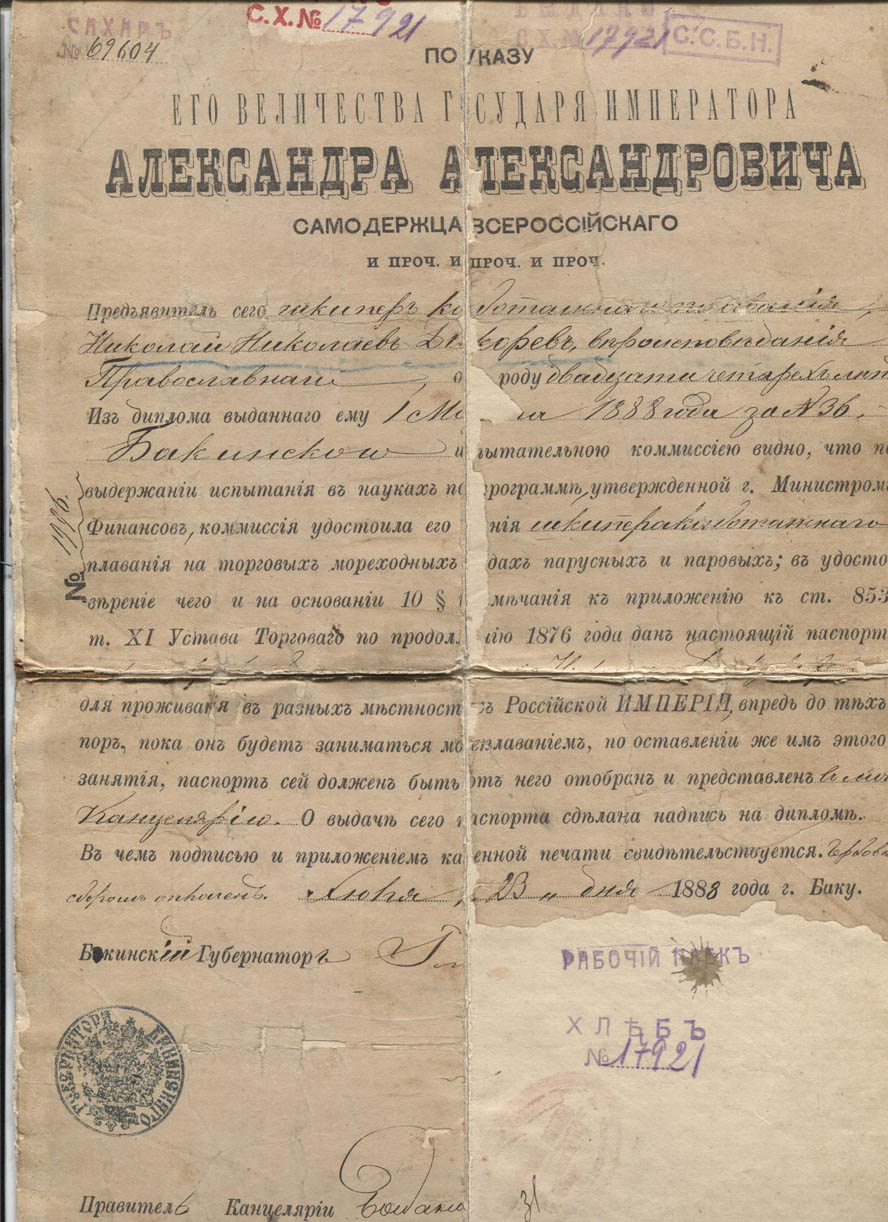 САХАРЪ
№ 69604
С.Х.№ 17921
ВЫДАНО
С.Х.№ 17921
С.С.Б.Н.
ПО УКАЗУ
ЕГО ВЕЛИЧЕСТВА ГОСУДАРЯ ИМПЕРАТОРА
АЛЕКСАНДРА АЛЕКСАНДРОВИЧА
САМОДЕРЖЦА ВСЕРОССІЙСКАГО
И ПРОЧ. И ПРОЧ. И ПРОЧ.
Предъявитель сего шкиперъ
Николай Николаевъ вѣроисповѣданія
Православнаго роду двадцати четырехъ лѣтъ
Изъ диплома выданнаго ему 1 1888 года за №36.
Бакинскою пытательною коммиссіею видно, что по
выдержаніи испытанія въ наукахъ по программѣ, утвержденной г. Министромъ
Финансовъ, коммиссія удостоила его нія шкипера каботажнаго
плаванія на торговыхъ мореходныхъ дахъ парусныхъ и паровыхъ; въ удосто
вѣреніе чего и на основаніи 10 § мѣчанія къ приложенію къ ст. 853
т. XI Устава Торговаго по продол нію 1876 года данъ настоящій паспортъ
№ 1996.
для проживанія въ разныхъ мѣстност хъ Россійской ИМПЕРІИ, впредь до тѣхъ
поръ, пока онъ будетъ заниматься мо еплаваніемъ, по оставленіи же имъ этого
занятія, паспортъ сей долженъ быть отъ него отобранъ и представленъ въ мою
Канцелярію. О выдачѣ сего паспорта сдѣлана надпись на дипломѣ.
Въ чемъ подписью и приложеніемъ ка енной печати свидѣтельствуется. Гербовы
сборомъ оплаченъ. „ 23 „ дня 1888 года г. Баку.
Бакинскій Губернаторъ
РАБОЧІЙ ПАЕКЪ
ХЛѢБЪ
№ 17921
БАКИНСКАГО ГУБЕРНАТОРА
Правитель Канцеляріи